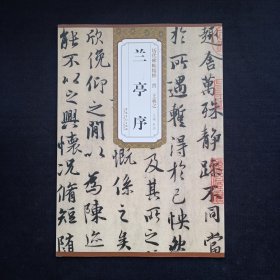 历代碑帖精粹
兰亭序
趣舍萬殊靜躁不同當
於所遇蹔得於己怏然
及其所之
慨係之矣
欣俛仰之間以為陳迹
能不以之興懷況脩短隨